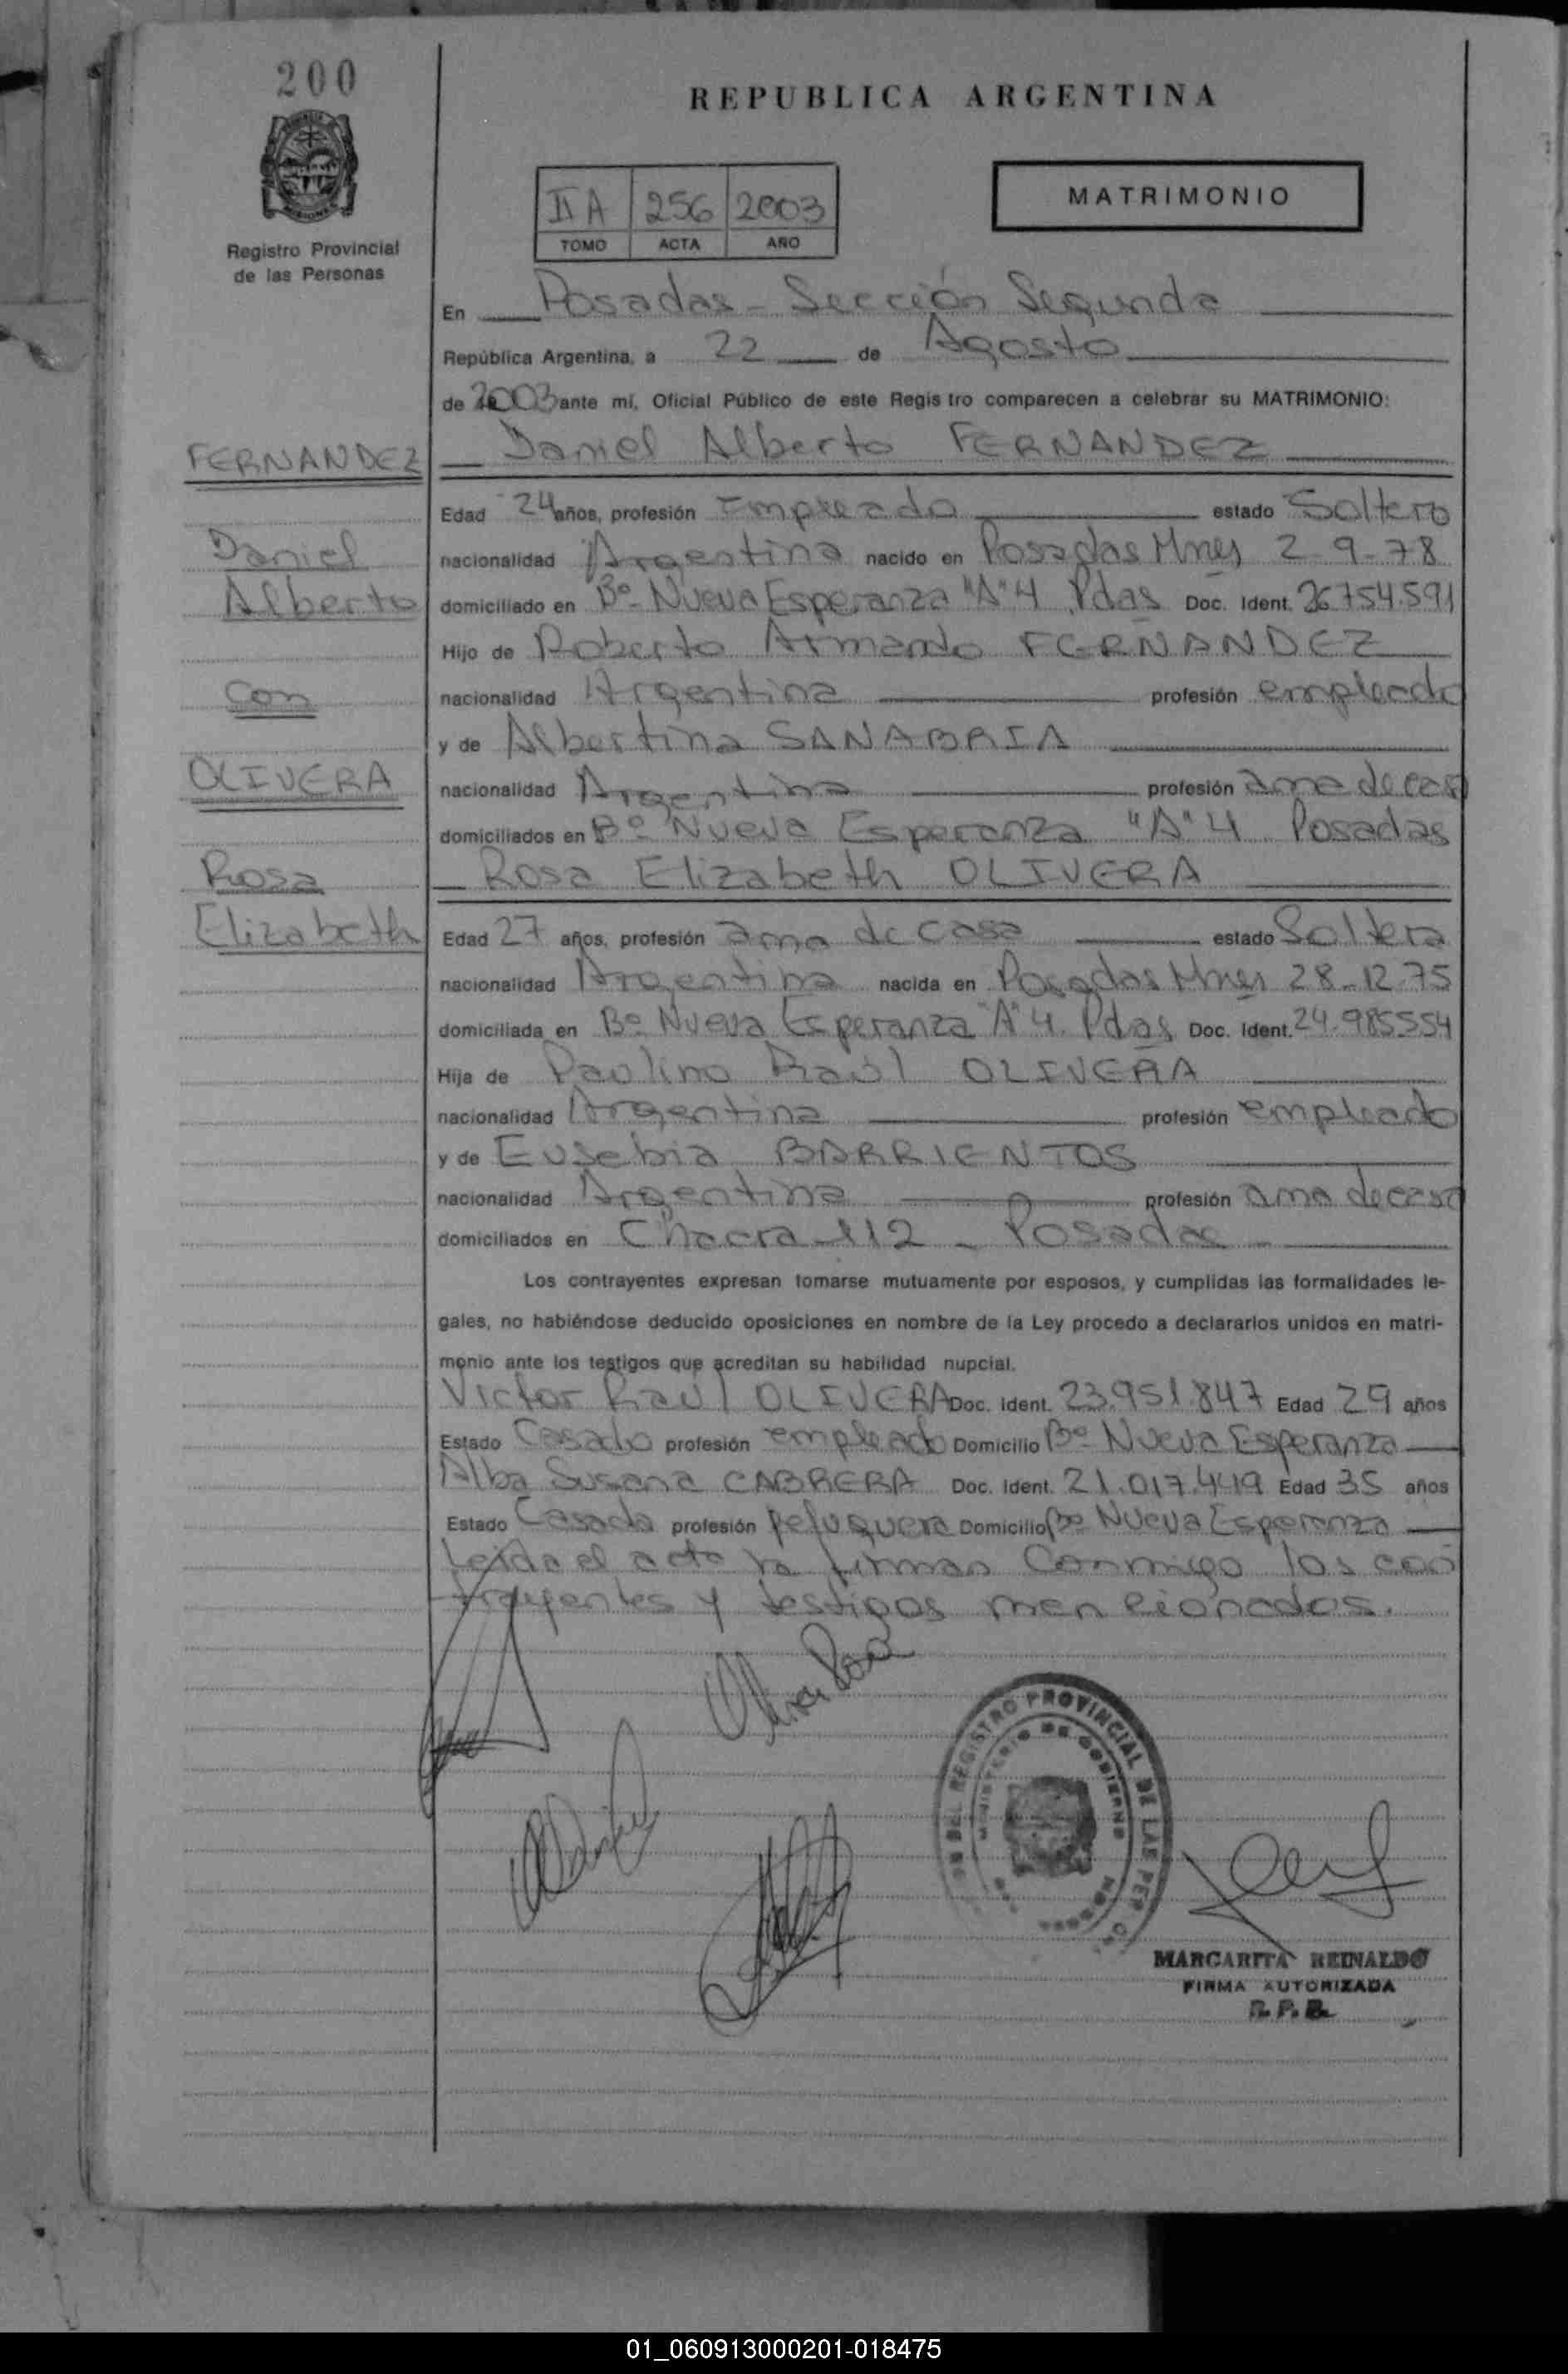 200
REPUBLICA ARGENTINA
MATRIMONIO
II A 256 2003
TOMO ACTA AÑO
Registro Provincial
de las Personas
En Posadas - Sección Segunda
República Argentina, a 22 de Agosto
de 2003 ante mí, Oficial Público de este Registro comparecen a celebrar su MATRIMONIO:
FERNANDEZ
Daniel Alberto FERNANDEZ
Edad 24 años, profesión Empleado estado Soltero
Daniel
nacionalidad Argentina nacido en Posadas Mnes 2-9-78
Alberto
domiciliado en Bº Nueva Esperanza "A" 4 Pdas Doc. Ident. 26.754.591
Hijo de Roberto Armando FERNANDEZ
Con
nacionalidad Argentina profesión empleado
y de Albertina SANABRIA
OLIVERA
nacionalidad Argentina profesión ama de casa
domiciliados en Bº Nueva Esperanza "A" 4 Posadas
Rosa
Rosa Elizabeth OLIVERA
Elizabeth
Edad 27 años, profesión ama de casa estado Soltera
nacionalidad Argentina nacida en Posadas Mnes 28-12-75
domiciliada en Bº Nueva Esperanza "A" 4 Pdas Doc. Ident. 24.985554
Hija de Paulino Raúl OLIVERA
nacionalidad Argentina profesión empleado
y de Eusebia BARRIENTOS
nacionalidad Argentina profesión ama de casa
domiciliados en Chacra 112 - Posadas -
Los contrayentes expresan tomarse mutuamente por esposos, y cumplidas las formalidades le-
gales, no habiéndose deducido oposiciones en nombre de la Ley procedo a declararlos unidos en matri-
monio ante los testigos que acreditan su habilidad nupcial.
Victor Raul OLIVERA Doc. Ident. 23.951.847 Edad 29 años
Estado Casado profesión empleado Domicilio Bº Nueva Esperanza
Alba Susana CABRERA Doc. Ident. 21.017.449 Edad 35 años
Estado Casada profesión peluquera Domicilio Bº Nueva Esperanza
Leida el acta la firman Conmigo los con
trayentes y testigos mencionados.
Olivera Rosa
REGISTRO PROVINCIAL DE LAS PER
MINISTERIO DE GOBIERNO
MARGARITA REINALDO
FIRMA AUTORIZADA
R. P. P.
01_060913000201-018475